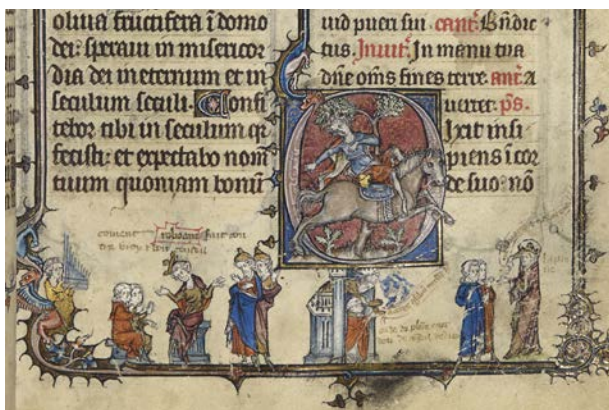 oliua fructifera ĩ domo
dei: speraui in misericor
dia dei in eternum et in
seculum seculi. Confi
tebor tibi in seculum qr
fecisti: et expectabo nom
tuum quoniam bonũ
uid pueri sui. cant'. Bñdic
tus. Inuit'. In manu tua
dñe oms fines terre. ant'. A
uertet. ps.
Ixit insi
piens ĩ cor
de suo: nõ
coment roboam fait son